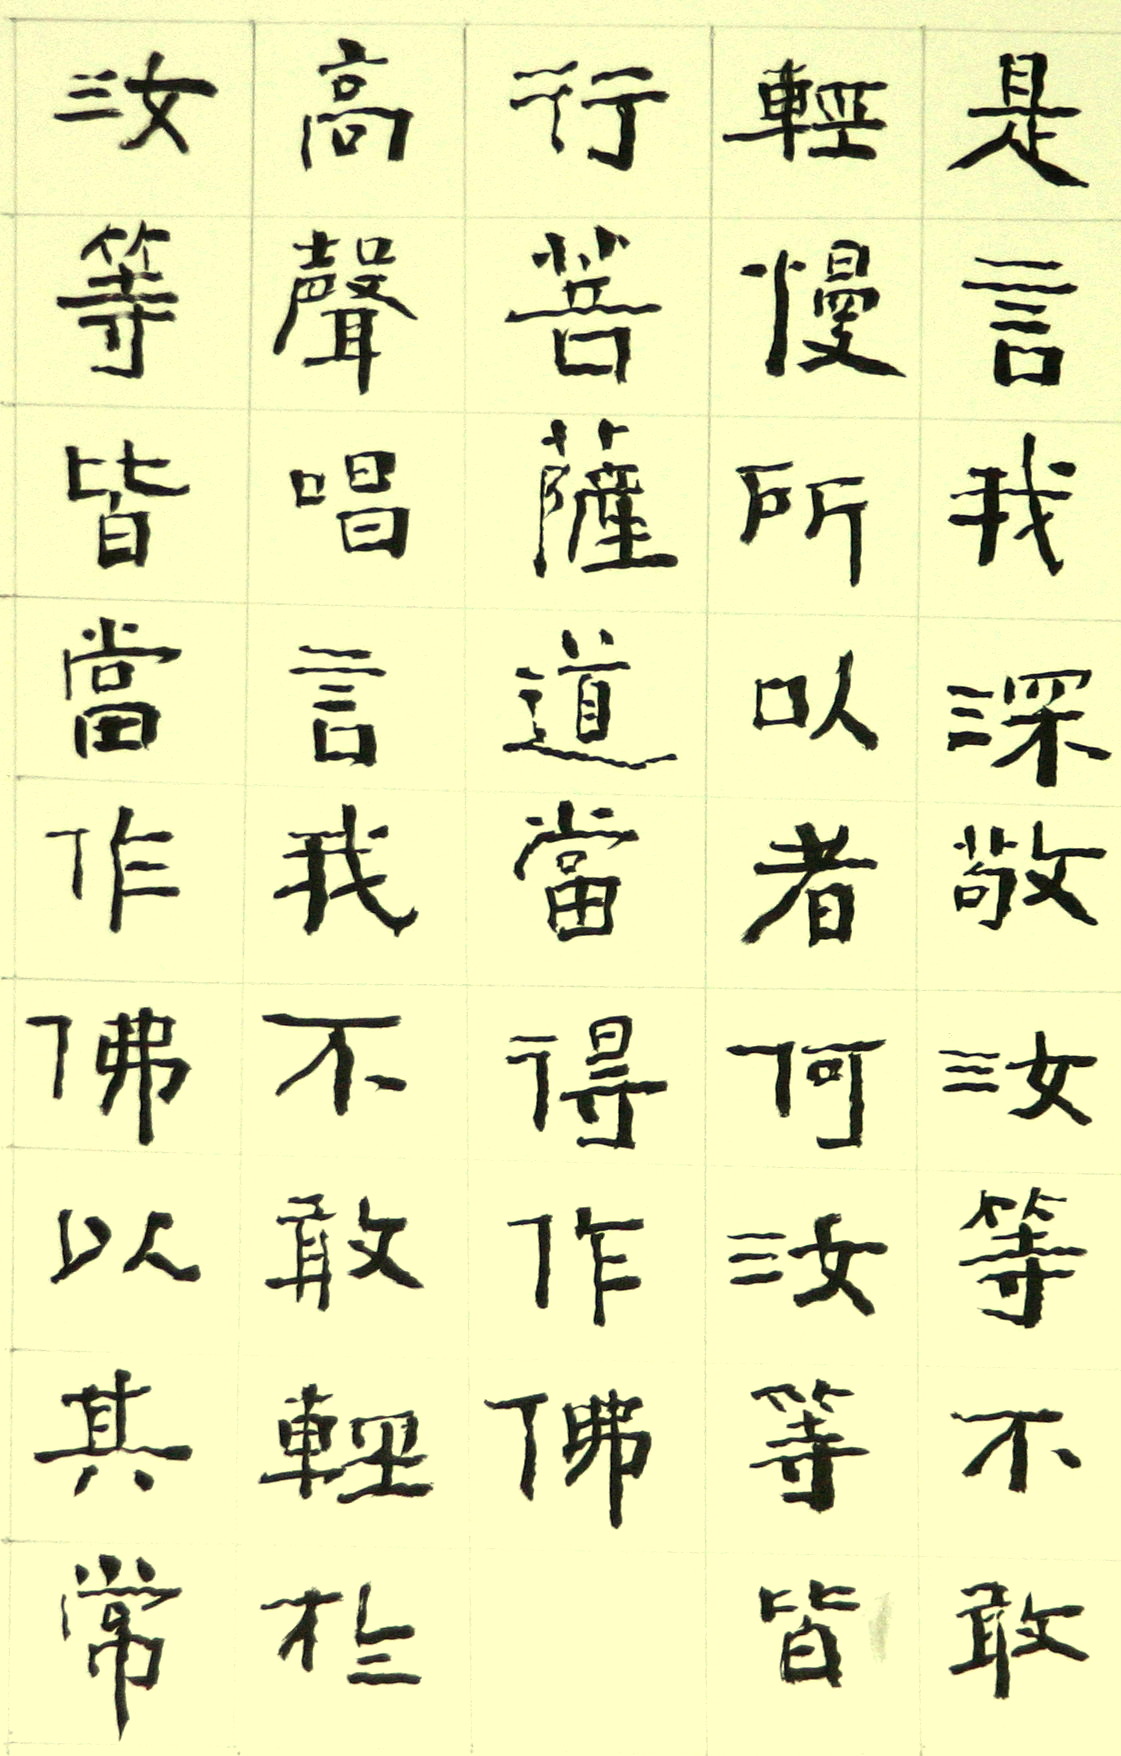 是言我深敬汝等不敢
輕慢所以者何汝等皆
行菩薩道當得作佛
高聲唱言我不敢輕於
汝等皆當作佛以其常